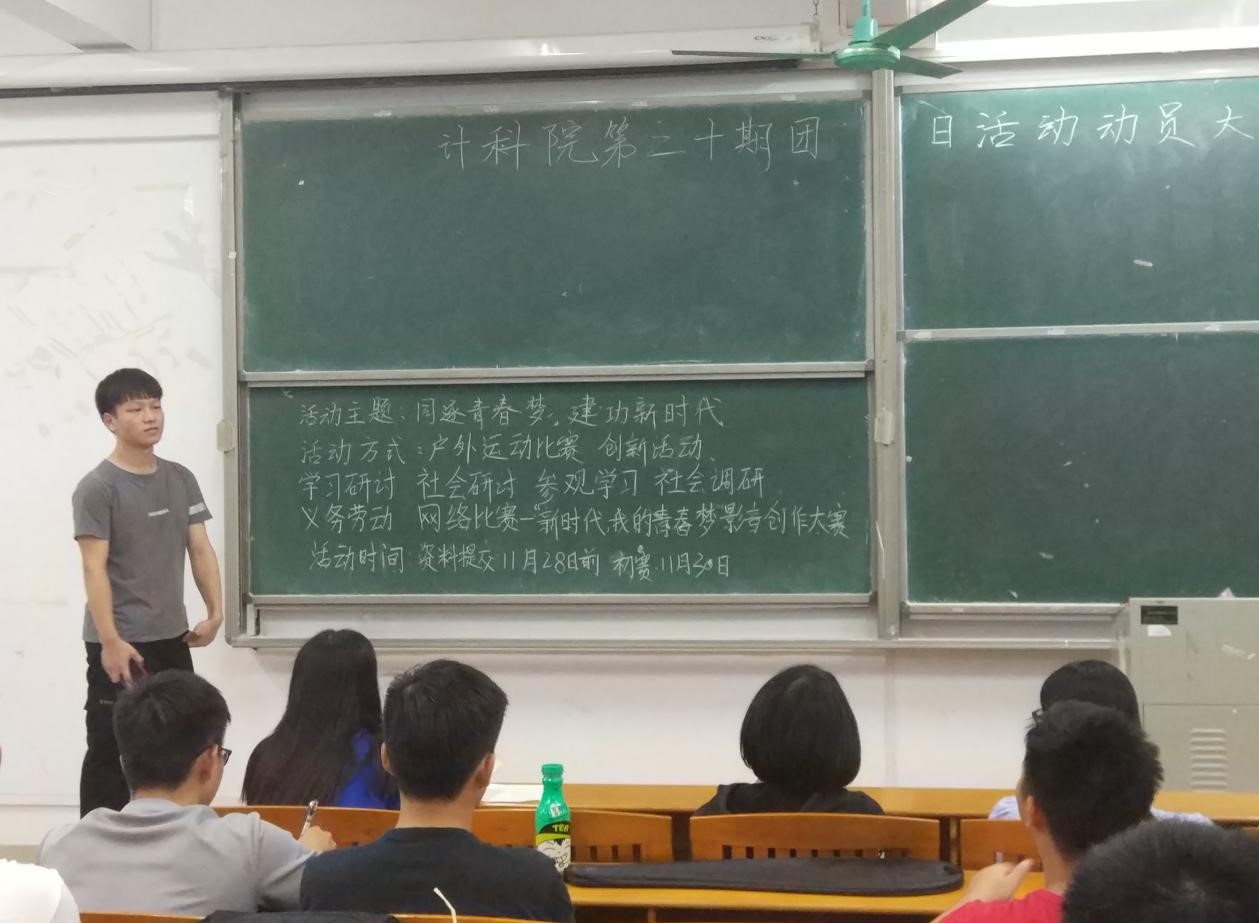 计科院第二十期团
日活动动员大
活动主题：同逐青春梦，建功新时代
活动方式：户外运动比赛 创新活动、
学习研讨 社会研讨 参观学习 社会调研
义务劳动 网络比赛—新时代我的青春梦影音创作大赛
活动时间：资料提交11月28日前 初赛：11月30日
TEA